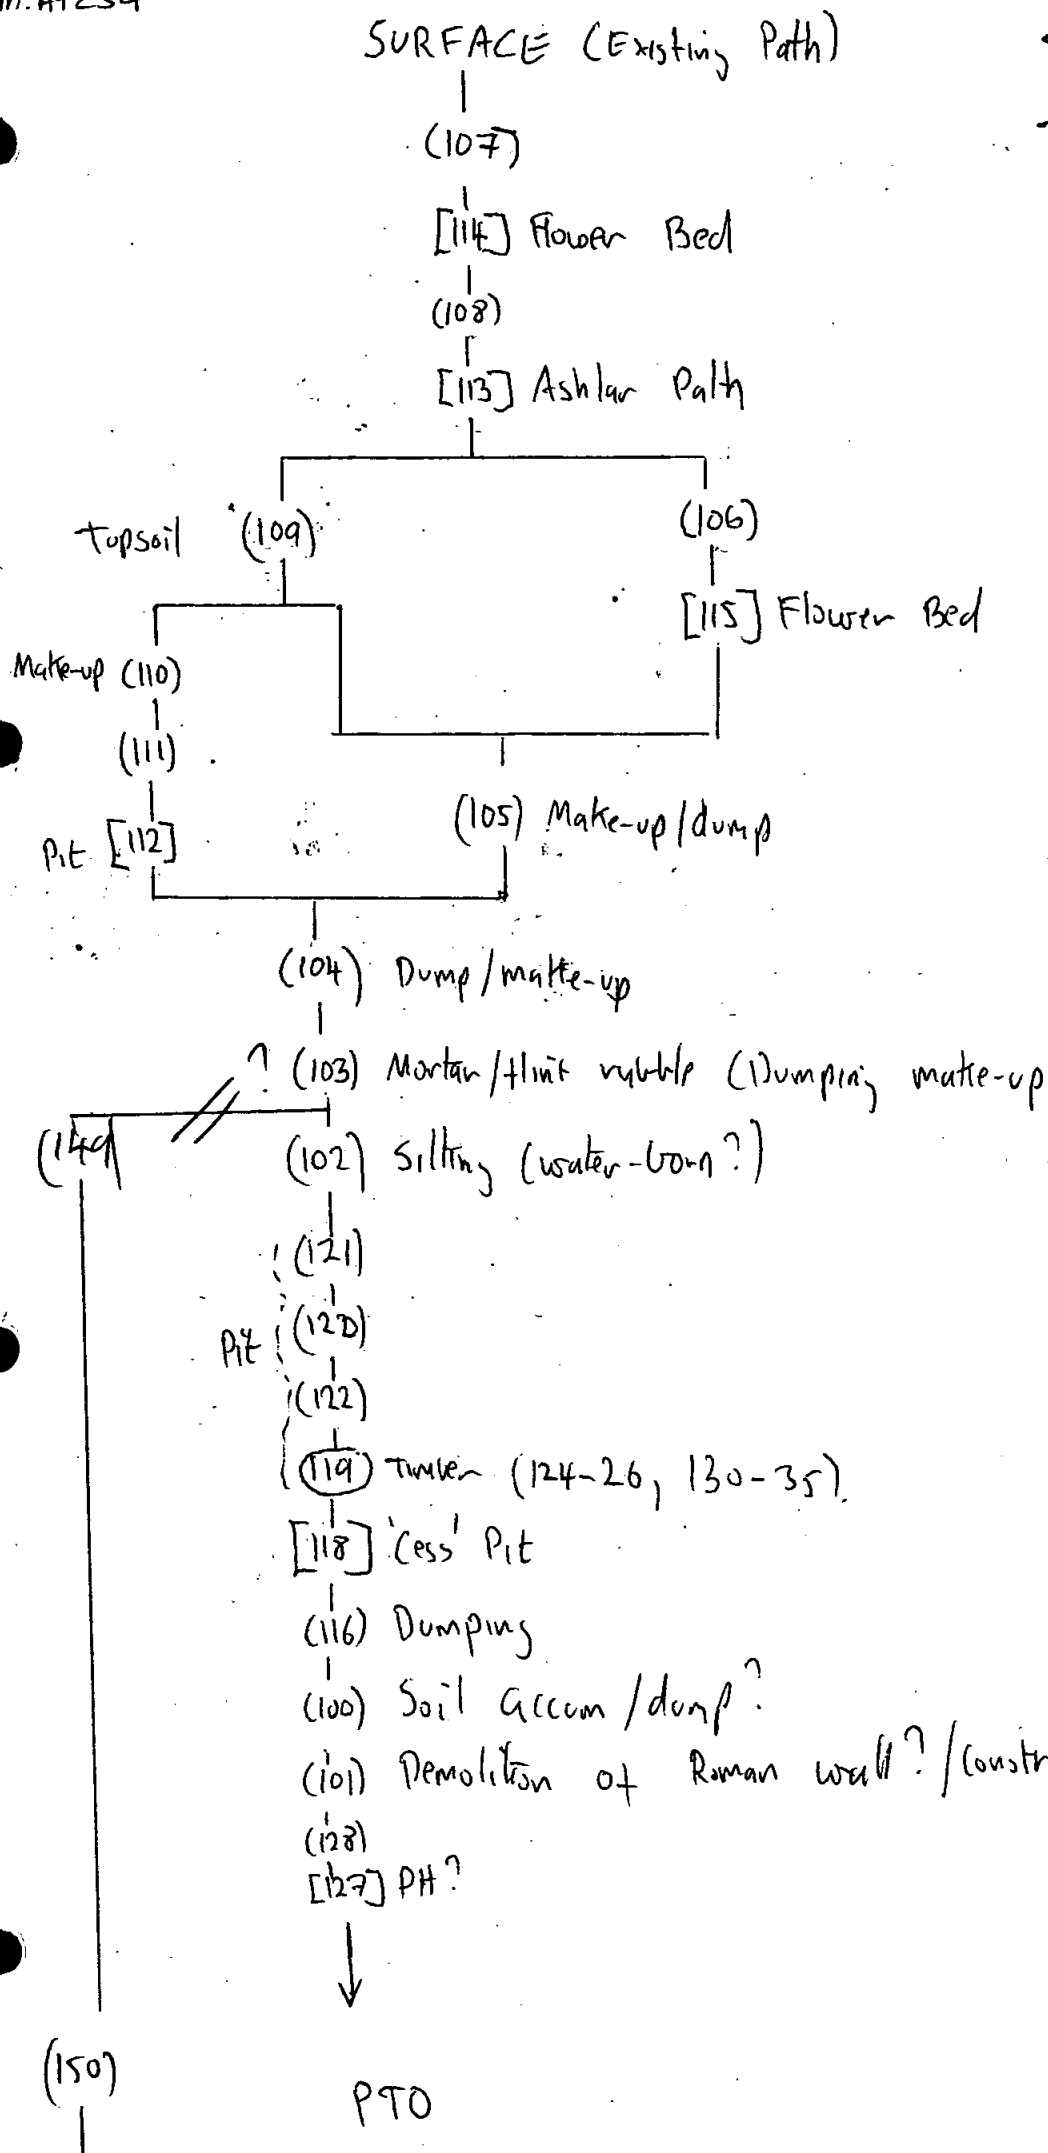 SURFACE (Existing Path)
(107)
[114] Flower Bed
(108)
[113] Ashlar Path
Topsoil (109)
(106)
[115] Flower Bed
Make-up (110)
(111)
(105) Make-up/dump
Pit [112]
(104) Dump/make-up
? (103) Mortar/flint rubble (Dumping make-up
(149)
(102) Silting (water-born?)
(121)
(120)
Pit
(122)
(119) Timber (124-26, 130-35).
[118] 'Cess' Pit
(116) Dumping
(100) Soil accum/dump?
(101) Demolition of Roman wall?/constr
(128)
[127] PH?
(150)
PTO